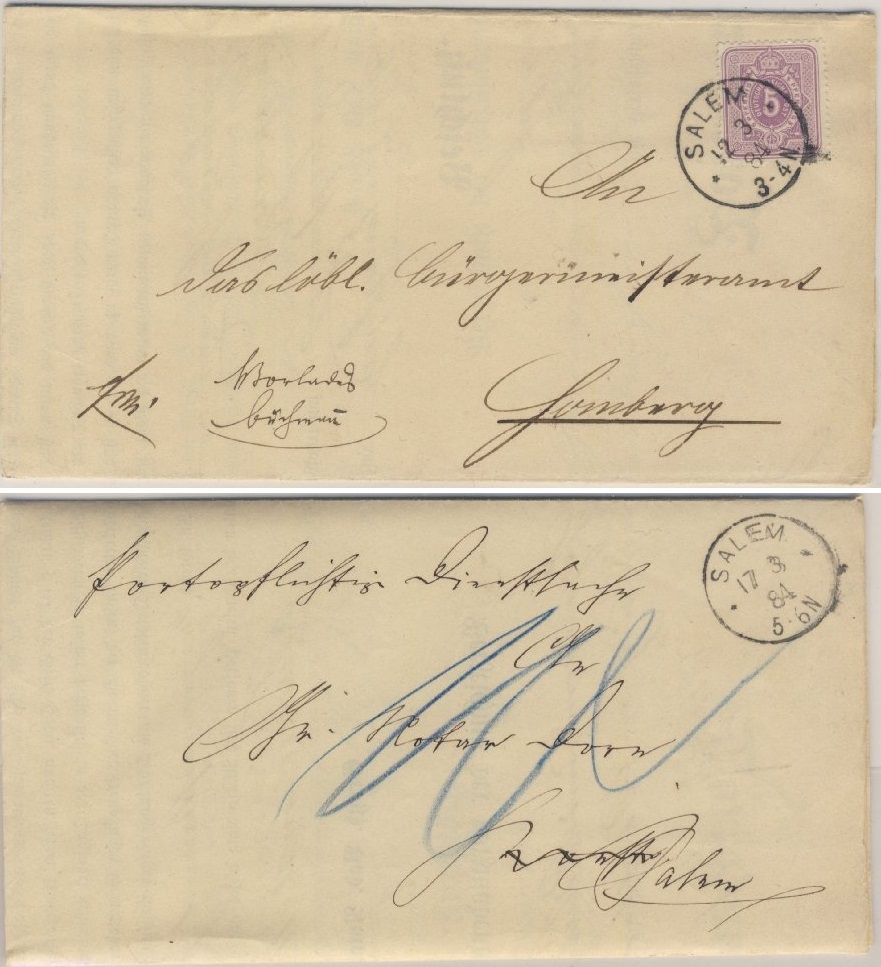 5
SALEM
12 3
84
3-4N
An
das löbl. Bürgermeisteramt
Homberg
SALEM
17 3
84
5-6N
Portopflichtige Dienstsache
An
Gr. Notar Dorn
Salem